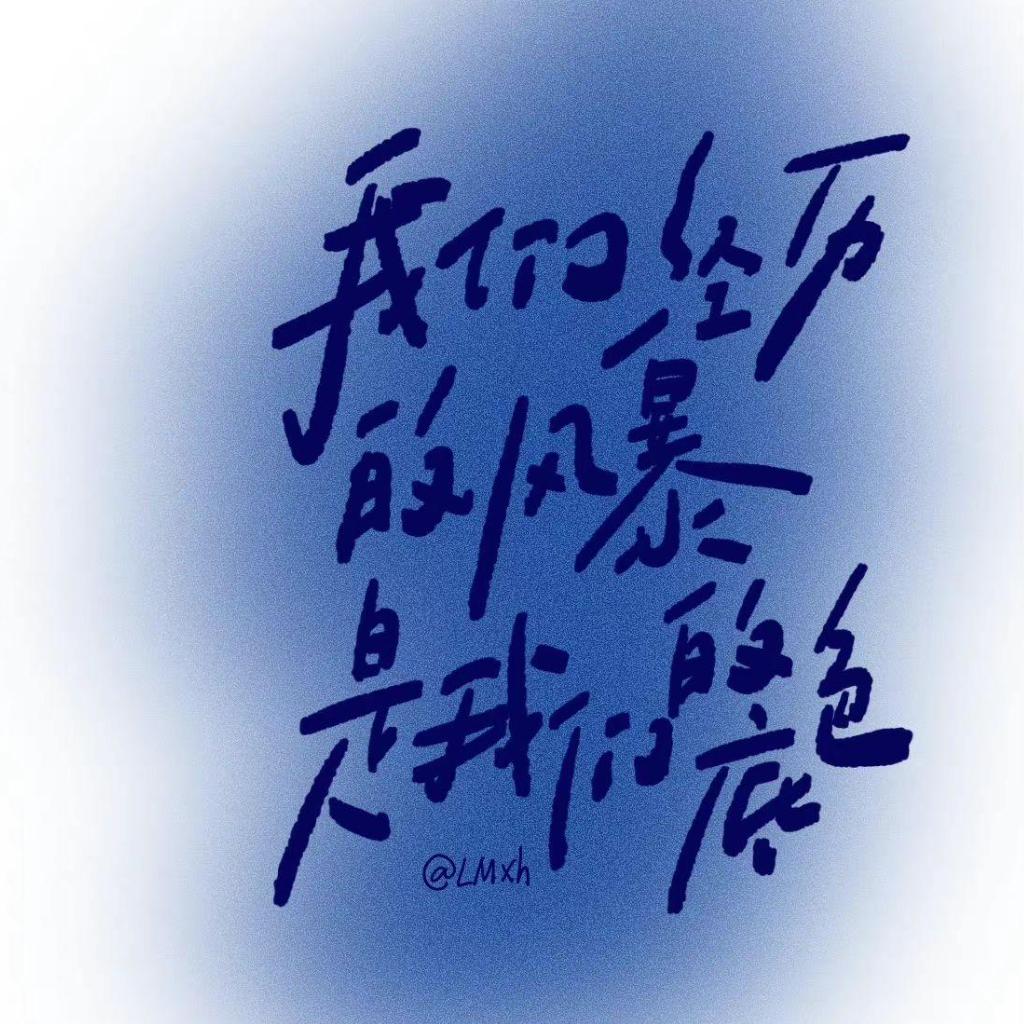 我们经历
的风暴
是我们的底色
@LMxh